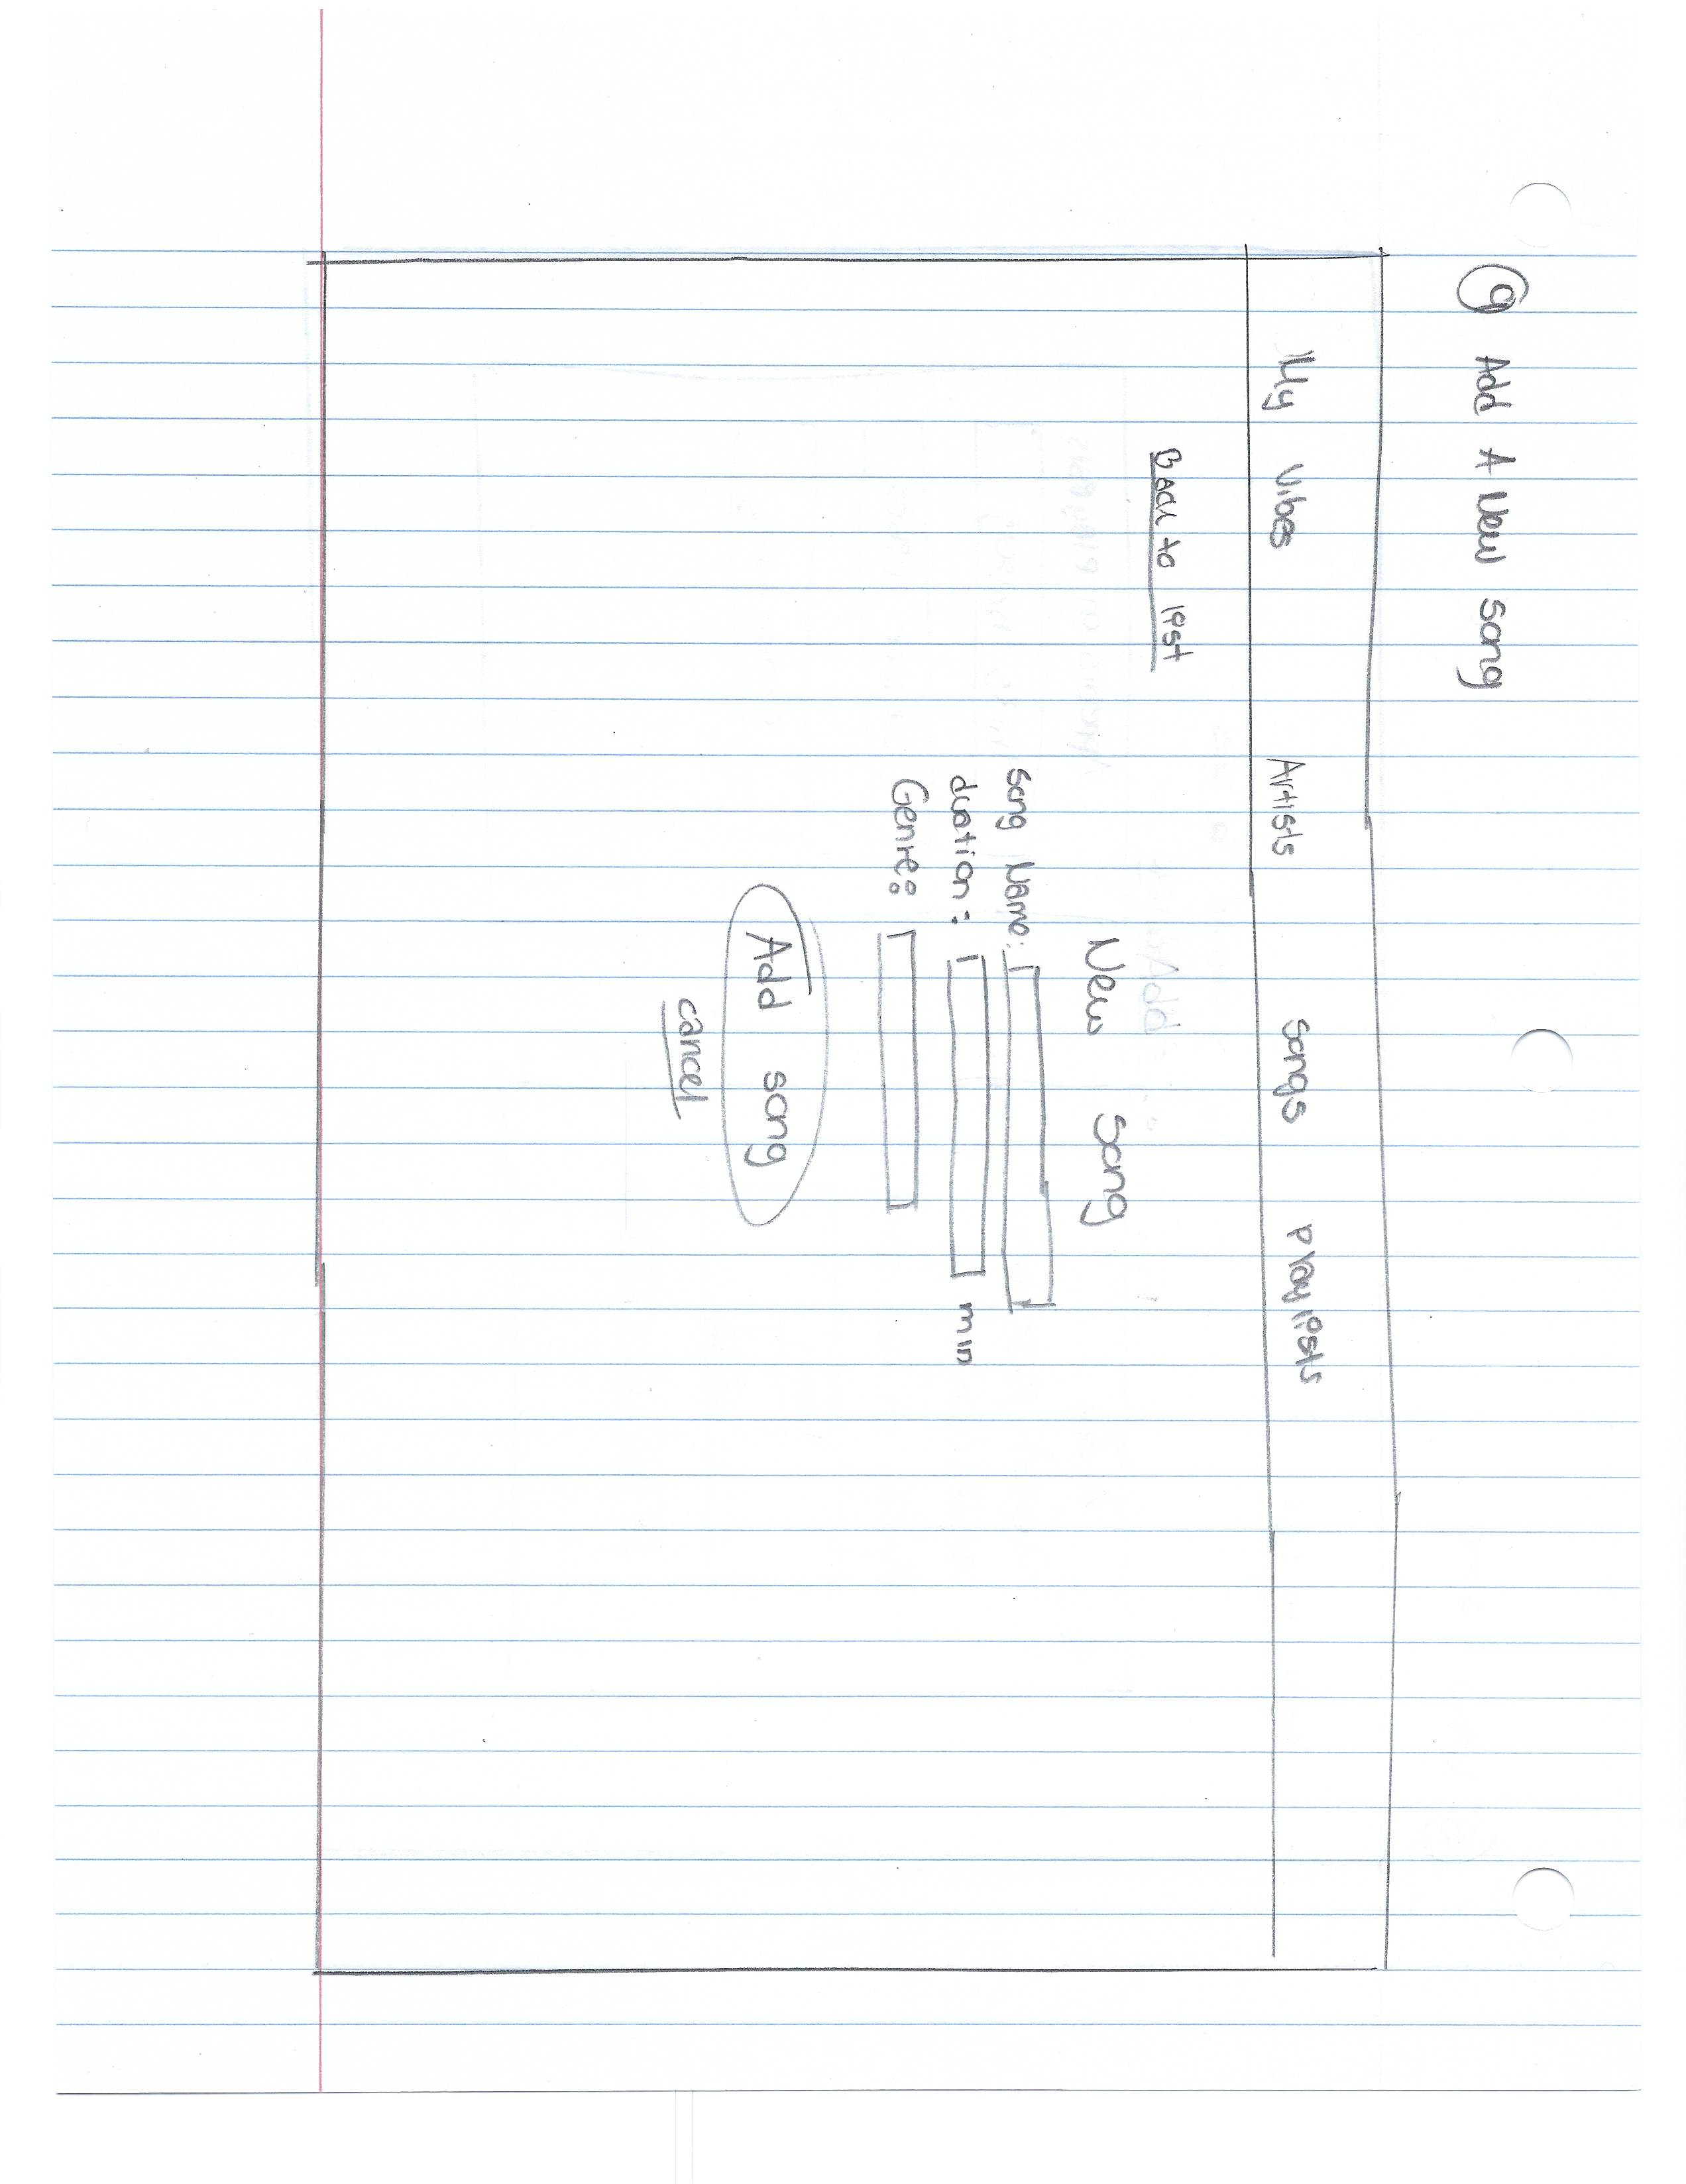 9 Add A New song
My Vibes Artists Songs Playlists
Back to list
New Song
song Name:
duation: min
Genre:
Add song
cancel